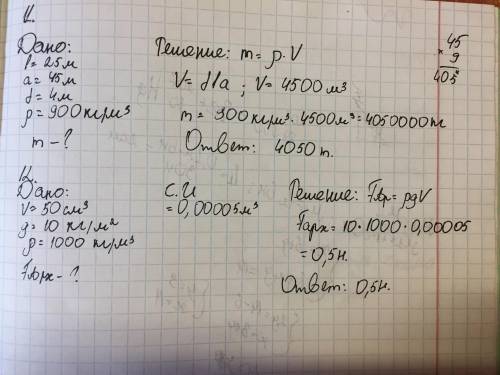 11.
Дано:
l = 25м
a = 45м
d = 4м
ρ = 900кг/м³
m - ?
Решение: m = ρ · V
V = dla ; V = 4500 м³
m = 900 кг/м³ · 4500м³ = 4050000кг
Ответ: 4050 т.
45
× 9
405
12.
Дано:
V = 50см³
g = 10 кг/м²
ρ = 1000 кг/м³
Fарх - ?
С.И
= 0,00005м³
Решение: Fар = ρgV
Fарх = 10 · 1000 · 0,00005
= 0,5н.
Ответ: 0,5н.